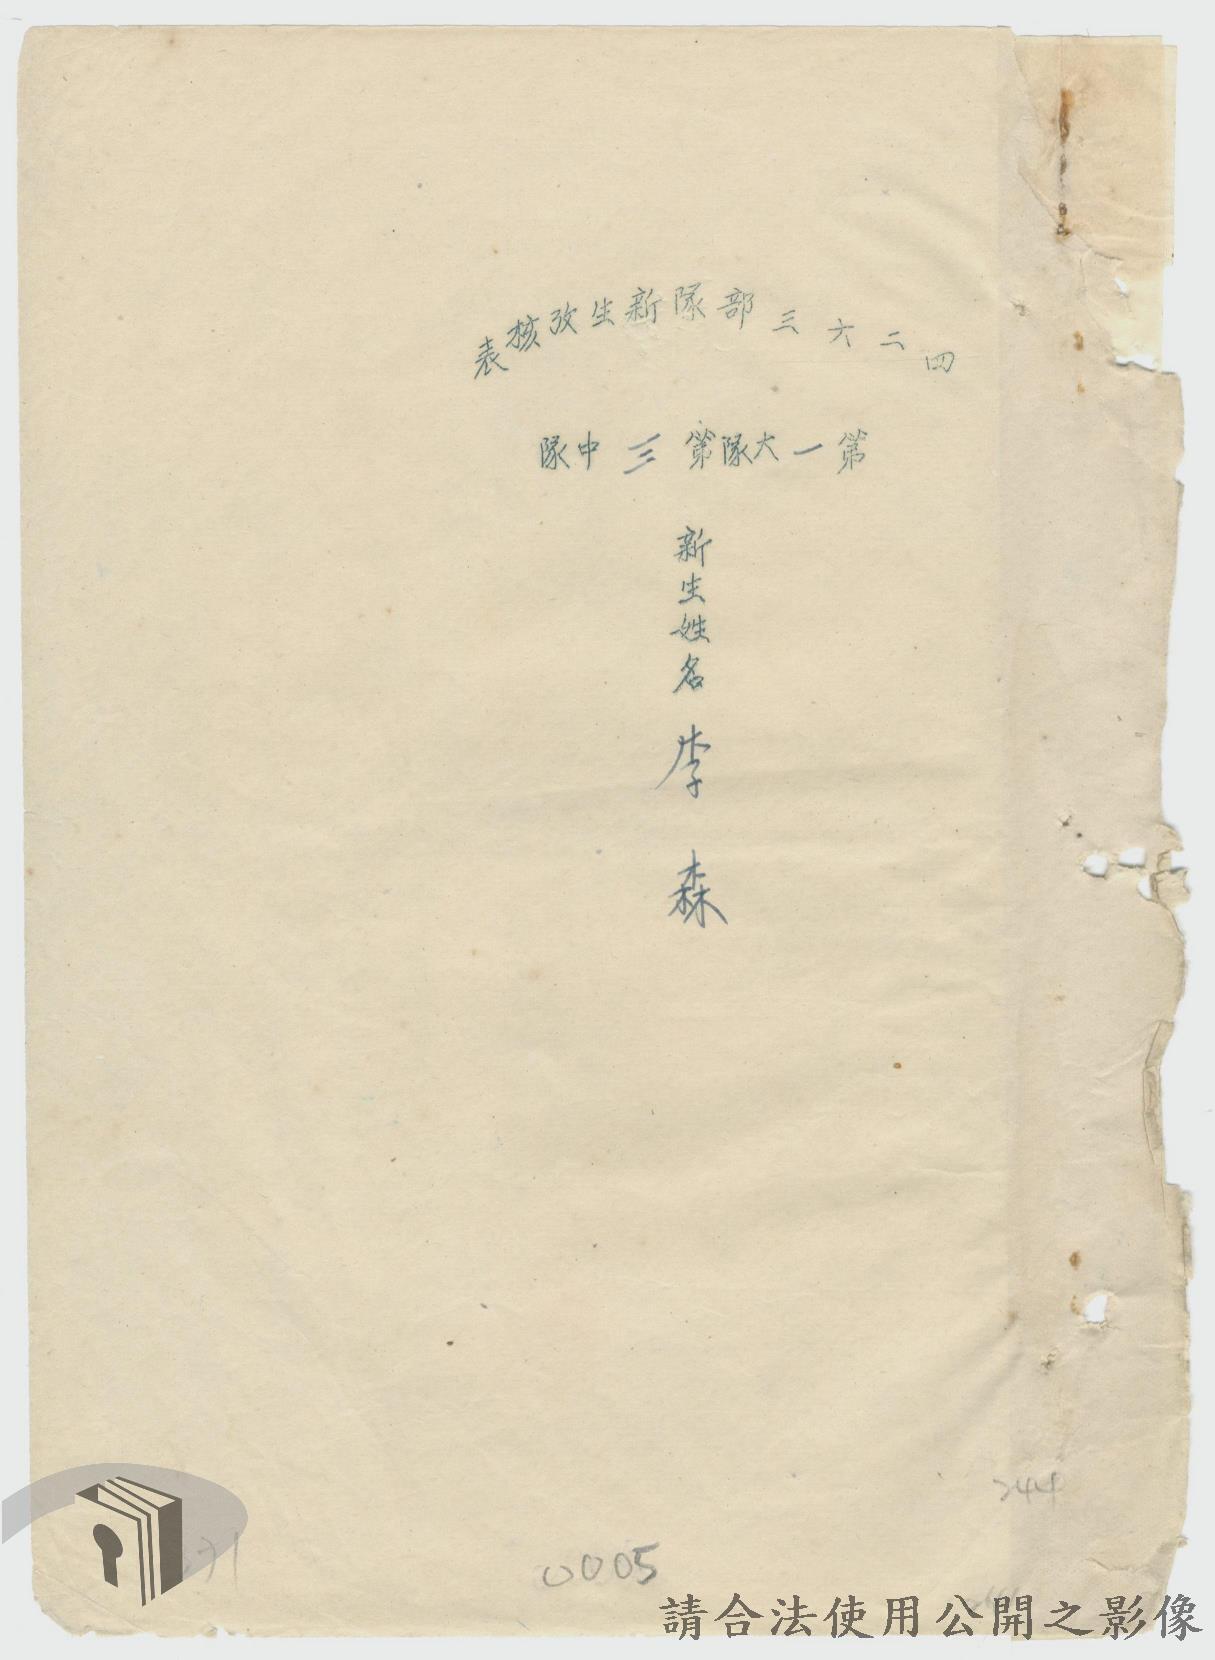 四二六三部隊新生攷核表
第一大隊第三中隊
新生姓名 李森
244
0005
請合法使用公開之影像